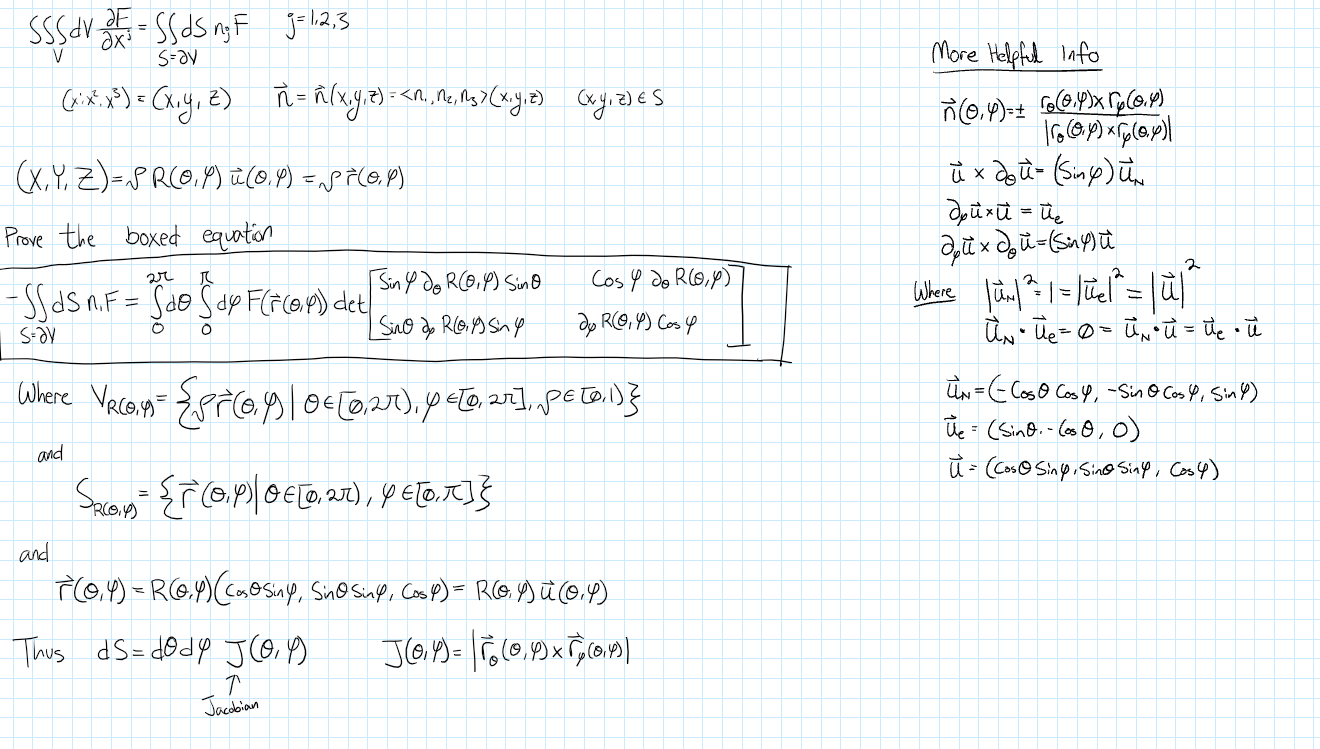 ∫∫∫_V dV ∂F/∂x^j = ∫∫_{S=∂V} dS n_j F   j=1,2,3
(x^1, x^2, x^3) = (x, y, z)   n⃗ = n⃗(x,y,z) = <n_1, n_2, n_3>(x,y,z)   (x,y,z) ∈ S
(X, Y, Z) = ρ R(θ,φ) u⃗(θ,φ) = ρ r⃗(θ,φ)
Prove the boxed equation
-∫∫_{S=∂V} dS n_1 F = ∫_0^{2π} dθ ∫_0^π dφ F(r⃗(θ,φ)) det [ Sinφ ∂_θ R(θ,φ) Sinθ   Cosφ ∂_θ R(θ,φ)
Sinθ ∂_φ R(θ,φ) Sinφ   ∂_φ R(θ,φ) Cosφ ]
Where V_{R(θ,φ)} = {ρ r⃗(θ,φ) | θ∈[0,2π), φ∈[0,2π], ρ∈[0,1)}
and
S_{R(θ,φ)} = {r⃗(θ,φ) | θ∈[0,2π), φ∈[0,π]}
and
r⃗(θ,φ) = R(θ,φ)(Cosθ Sinφ, Sinθ Sinφ, Cosφ) = R(θ,φ) u⃗(θ,φ)
Thus   dS = dθdφ J(θ,φ)   J(θ,φ) = |r⃗_θ(θ,φ) × r⃗_φ(θ,φ)|
↑
Jacobian
More Helpful Info
n⃗(θ,φ) = ± r_θ(θ,φ) × r_φ(θ,φ) / |r_θ(θ,φ) × r_φ(θ,φ)|
u⃗ × ∂_θ u⃗ = (Sinφ) u⃗_N
∂_φ u⃗ × u⃗ = u⃗_e
∂_φ u⃗ × ∂_θ u⃗ = (Sinφ) u⃗
Where   |u⃗_N|^2 = 1 = |u⃗_e|^2 = |u⃗|^2
u⃗_N · u⃗_e = 0 = u⃗_N · u⃗ = u⃗_e · u⃗
u⃗_N = (-Cosθ Cosφ, -Sinθ Cosφ, Sinφ)
u⃗_e = (Sinθ, -Cosθ, 0)
u⃗ = (Cosθ Sinφ, Sinθ Sinφ, Cosφ)